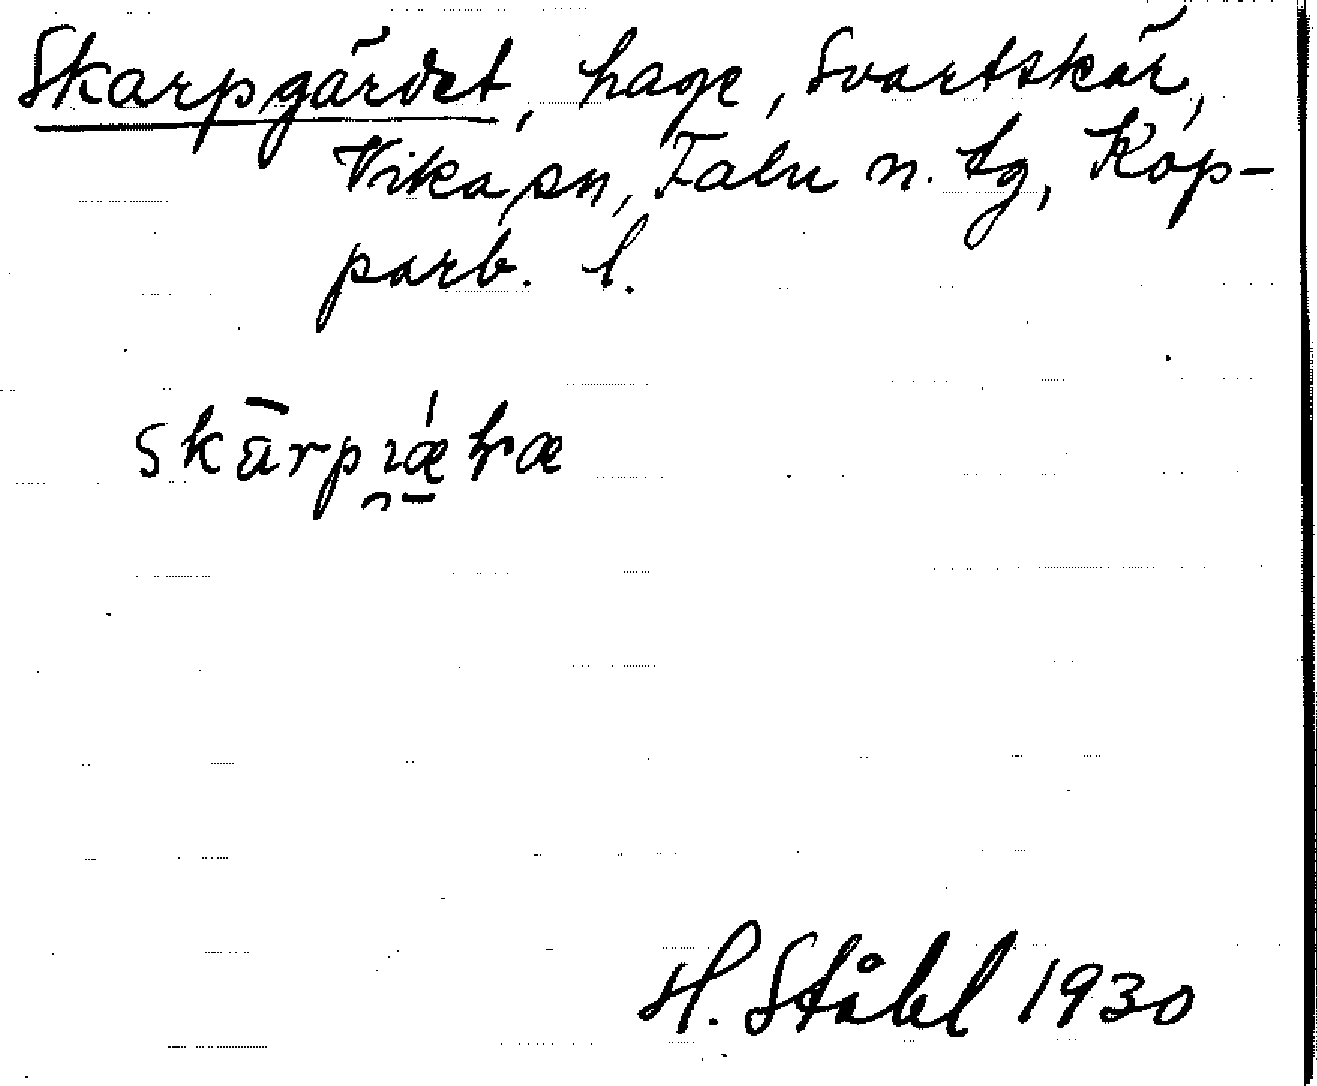 Skarpgärdet, hage, Svartskär,
Vika sn, Falu n. tg, Kop-
parb. l.
H. Ståhl 1930